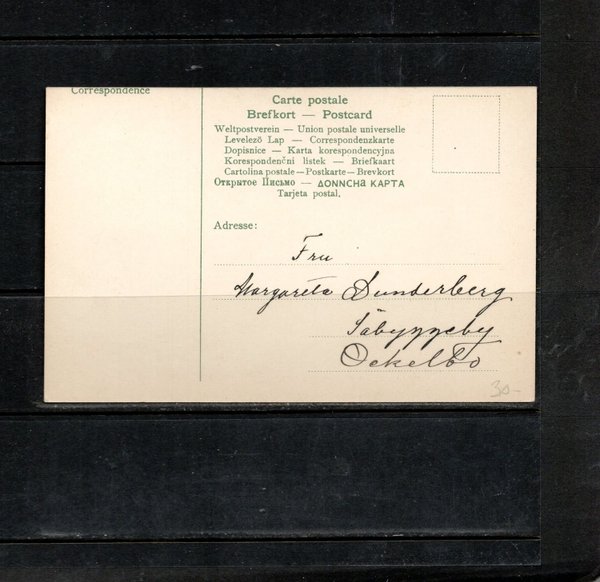 Correspondence
Carte postale
Brefkort — Postcard
Weltpostverein — Union postale universelle
Levelező Lap — Correspondenzkarte
Dopisnice — Karta korespondencyjna
Korespondenční listek — Briefkaart
Cartolina postale — Postkarte — Brevkort
Открытое Письмо — ΔΟΝΝCHa ΚΑΡΤΑ
Tarjeta postal.
Adresse:
Fru
Margareta Dunderberg
Säbyggeby
Ockelbo
30-